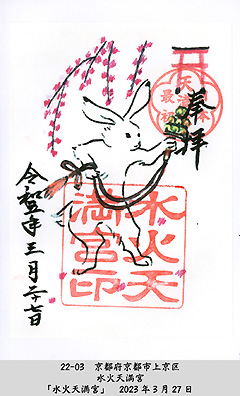 奉拝
水火天
満宮印
令和五年三月二十七日
22-03 京都府京都市上京区
水火天満宮
「水火天満宮」 2023年3月27日